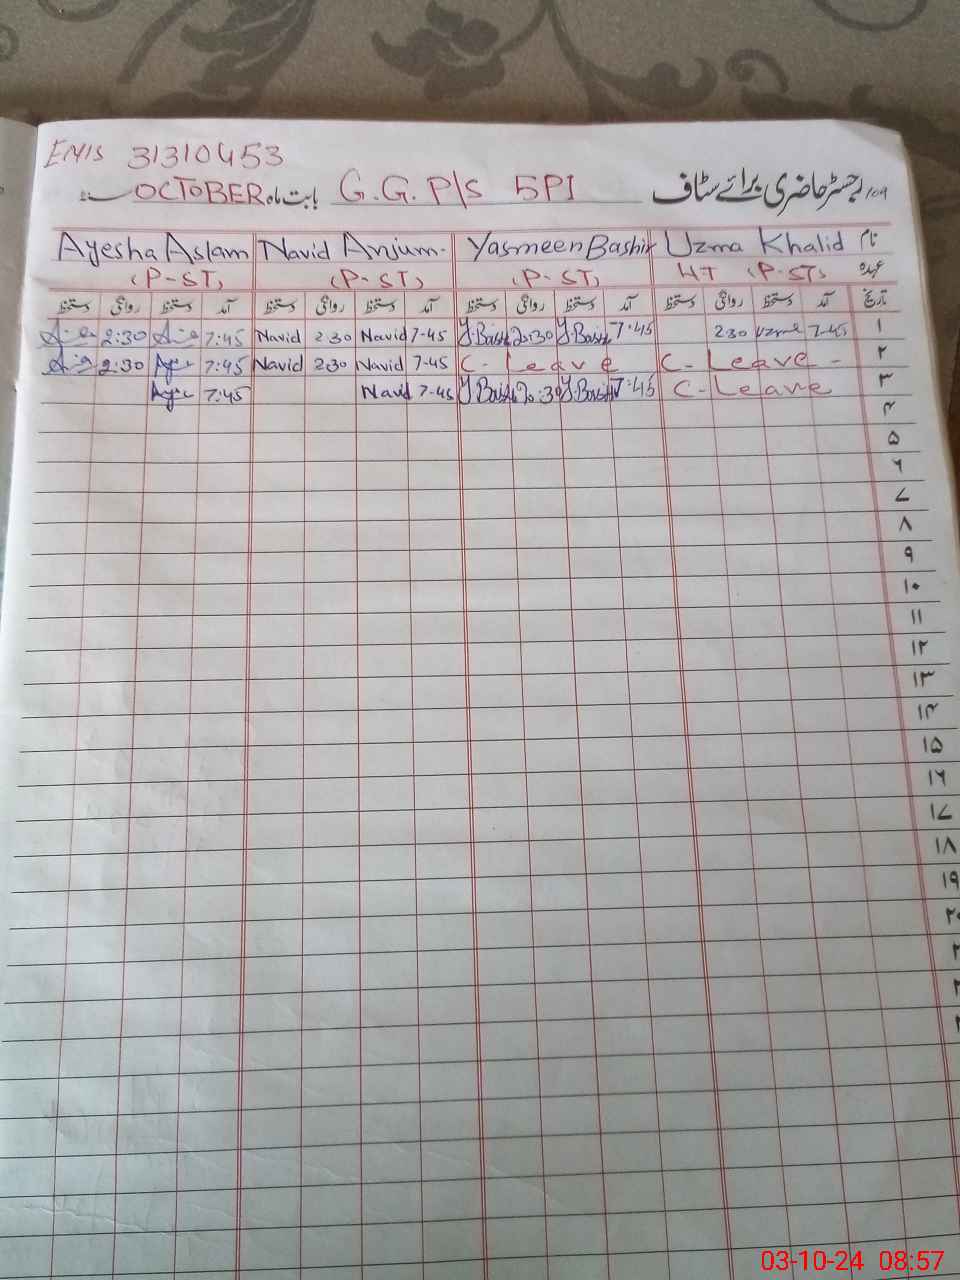 EMIS 31310453
رجسٹر حاضری برائے سٹاف G.G.P/S 5PI بابت ماہ OCTOBER سنہ
نام Uzma Khalid Yasmeen Bashir Navid Anjum. Ayesha Aslam
عہدہ HT (P-ST) (P-ST) (P-ST) (P-ST)
تاریخ آمد دستخط روانگی دستخط آمد دستخط روانگی دستخط آمد دستخط روانگی دستخط آمد دستخط روانگی دستخط
۱ 7-45 Uzma 230 7:45 Y.Bashir 2:30 Y.Bashir 7-45 Navid 230 Navid 7:45 2:30
۲ C- Leave - C- Leave 7-45 Navid 230 Navid 7:45 2:30
۳ C-Leave 7:45 Y.Bashir Y.Bashir 7-45 Navid 7:45
۴
۵
۶
۷
۸
۹
۱۰
۱۱
۱۲
۱۳
۱۴
۱۵
۱۶
۱۷
۱۸
۱۹
۲۰
03-10-24 08:57